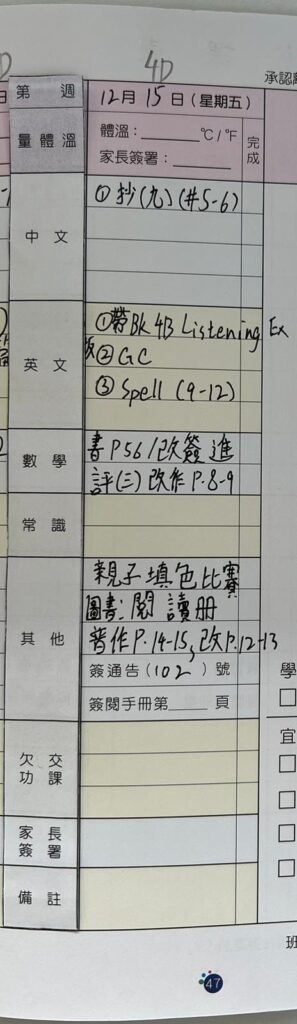 4D
承認
第 週
12月15日(星期五)
量體溫
體溫:______°C/°F
家長簽署:______
完成
中文
①抄(九)(#5-6)
英文
①帶Bk 4B Listening Ex
②GC
③Spell (9-12)
數學
書P56/改簽進
評(三)改作P.8-9
常識
其他
親子填色比賽
圖書:閱讀册
普作P.14-15,改P.12-13
簽通告(102)號
簽閱手冊第______頁
學
欠交功課
宜
家長簽署
備註
班
47